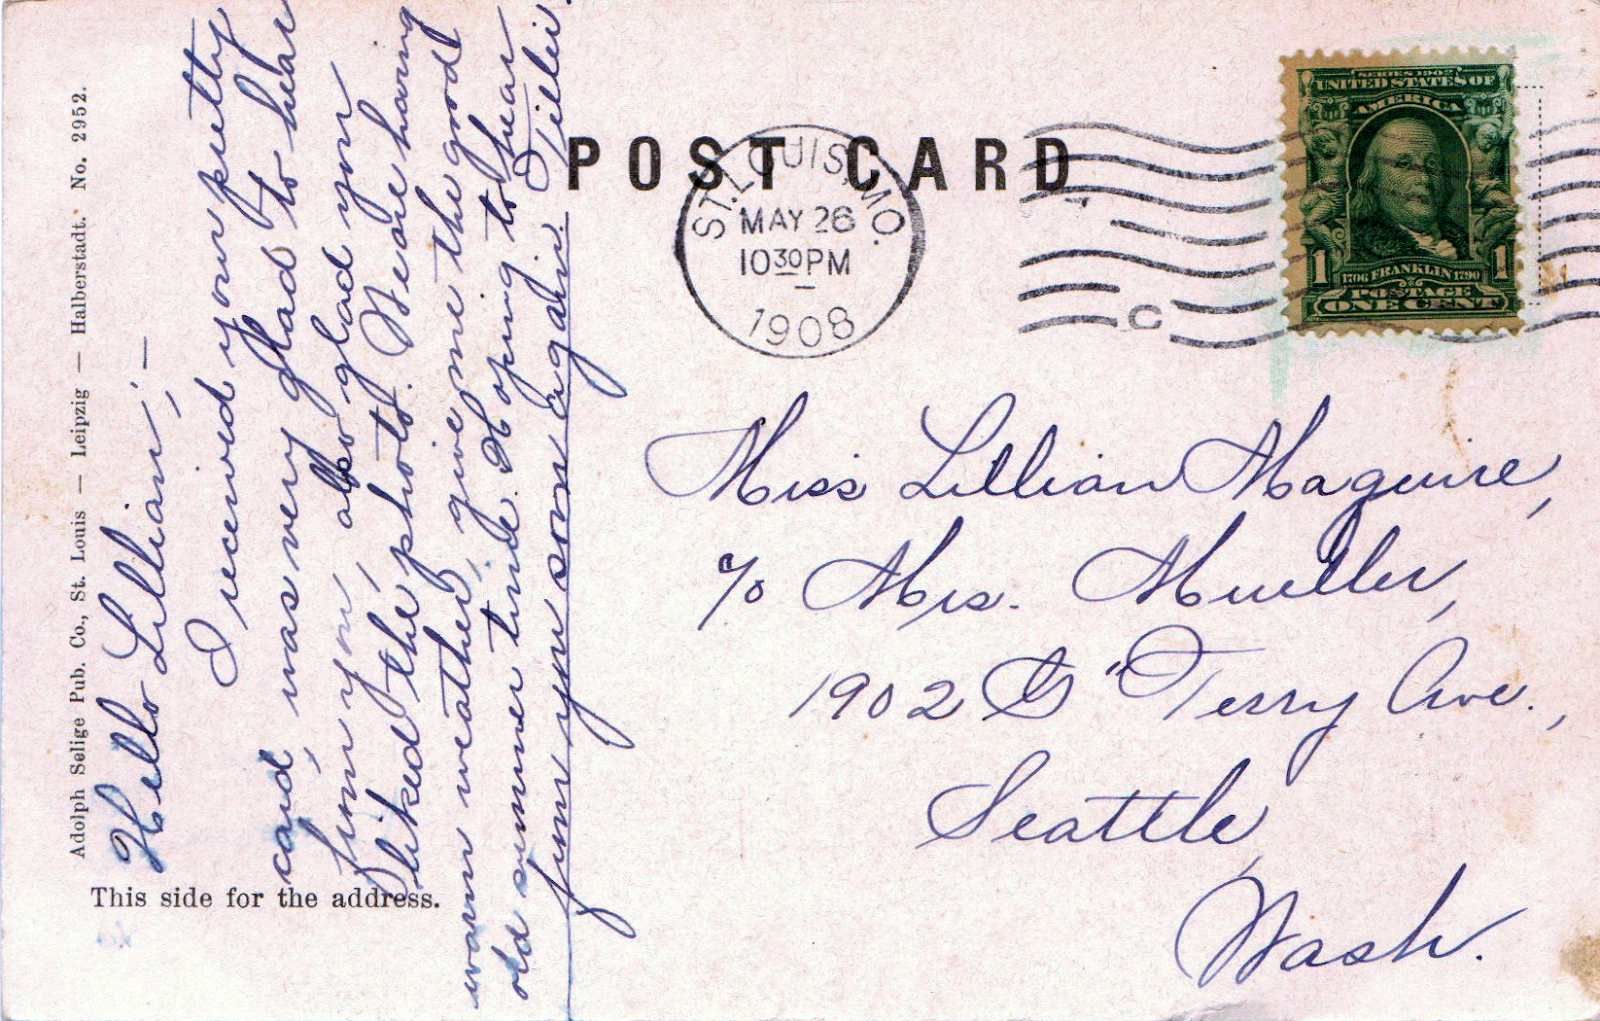 Adolph Selige Pub. Co., St. Louis — Leipzig — Halberstadt. No. 2952.
Hello Lillian;—
I received your pretty
card, was very glad to hear
from you, also glad you
liked the photo. We are having
warm weather, give me the good
old summer time. Hoping to hear
from you soon again. Tillie.
This side for the address.
POST CARD
ST. LOUIS, MO.
MAY 26
10 30 PM
1908
C
SERIES 1902
UNITED STATES OF
AMERICA
1706 FRANKLIN 1790
1 1
POSTAGE
ONE CENT
Miss Lillian Maguire,
c/o Mrs. Mueller,
1902 Terry Ave.,
Seattle,
Wash.